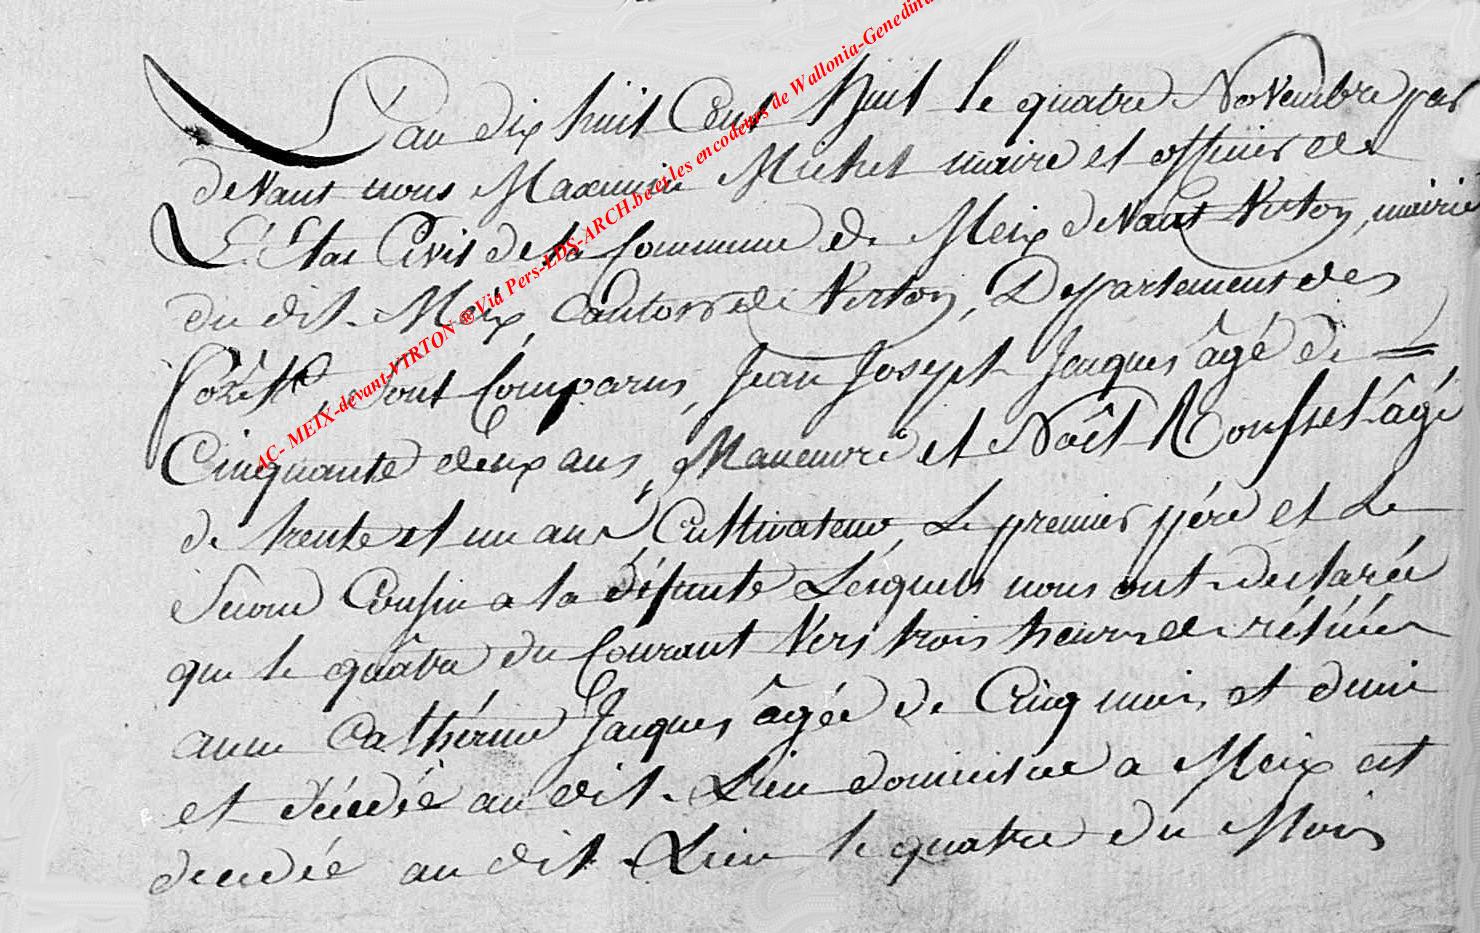 L'an dix huit Cent huit le quatre Novembre par
devant nous Maximin Michel maire et officier de
L'Etat Civil de la Commune de Meix devant Virton, mairie
du dit Meix, Canton de Virton, Departement des
forêts, sont Comparus, Jean Joseph Jacques âgé de =
Cinquante deux ans, Maneuvre et Noêl Rousset âgé
de trente et un ans, Cultivateur, Le premier pére et Le
Second Cousin a la défunte Lésquels nous ont declarée
que le quâtre du Courant Vers trois heures de
anne Cathérine Jacques âgée de Cinq mois et demi
et décédée au dit Lieu domiciliée a Meix est
decedée au dit Lieu le quatre du Mois
AC- MEIX-devant-VIRTON ® Via Pers-LDS-ARCH.be et les encodeurs de Wallonia-Genedinu